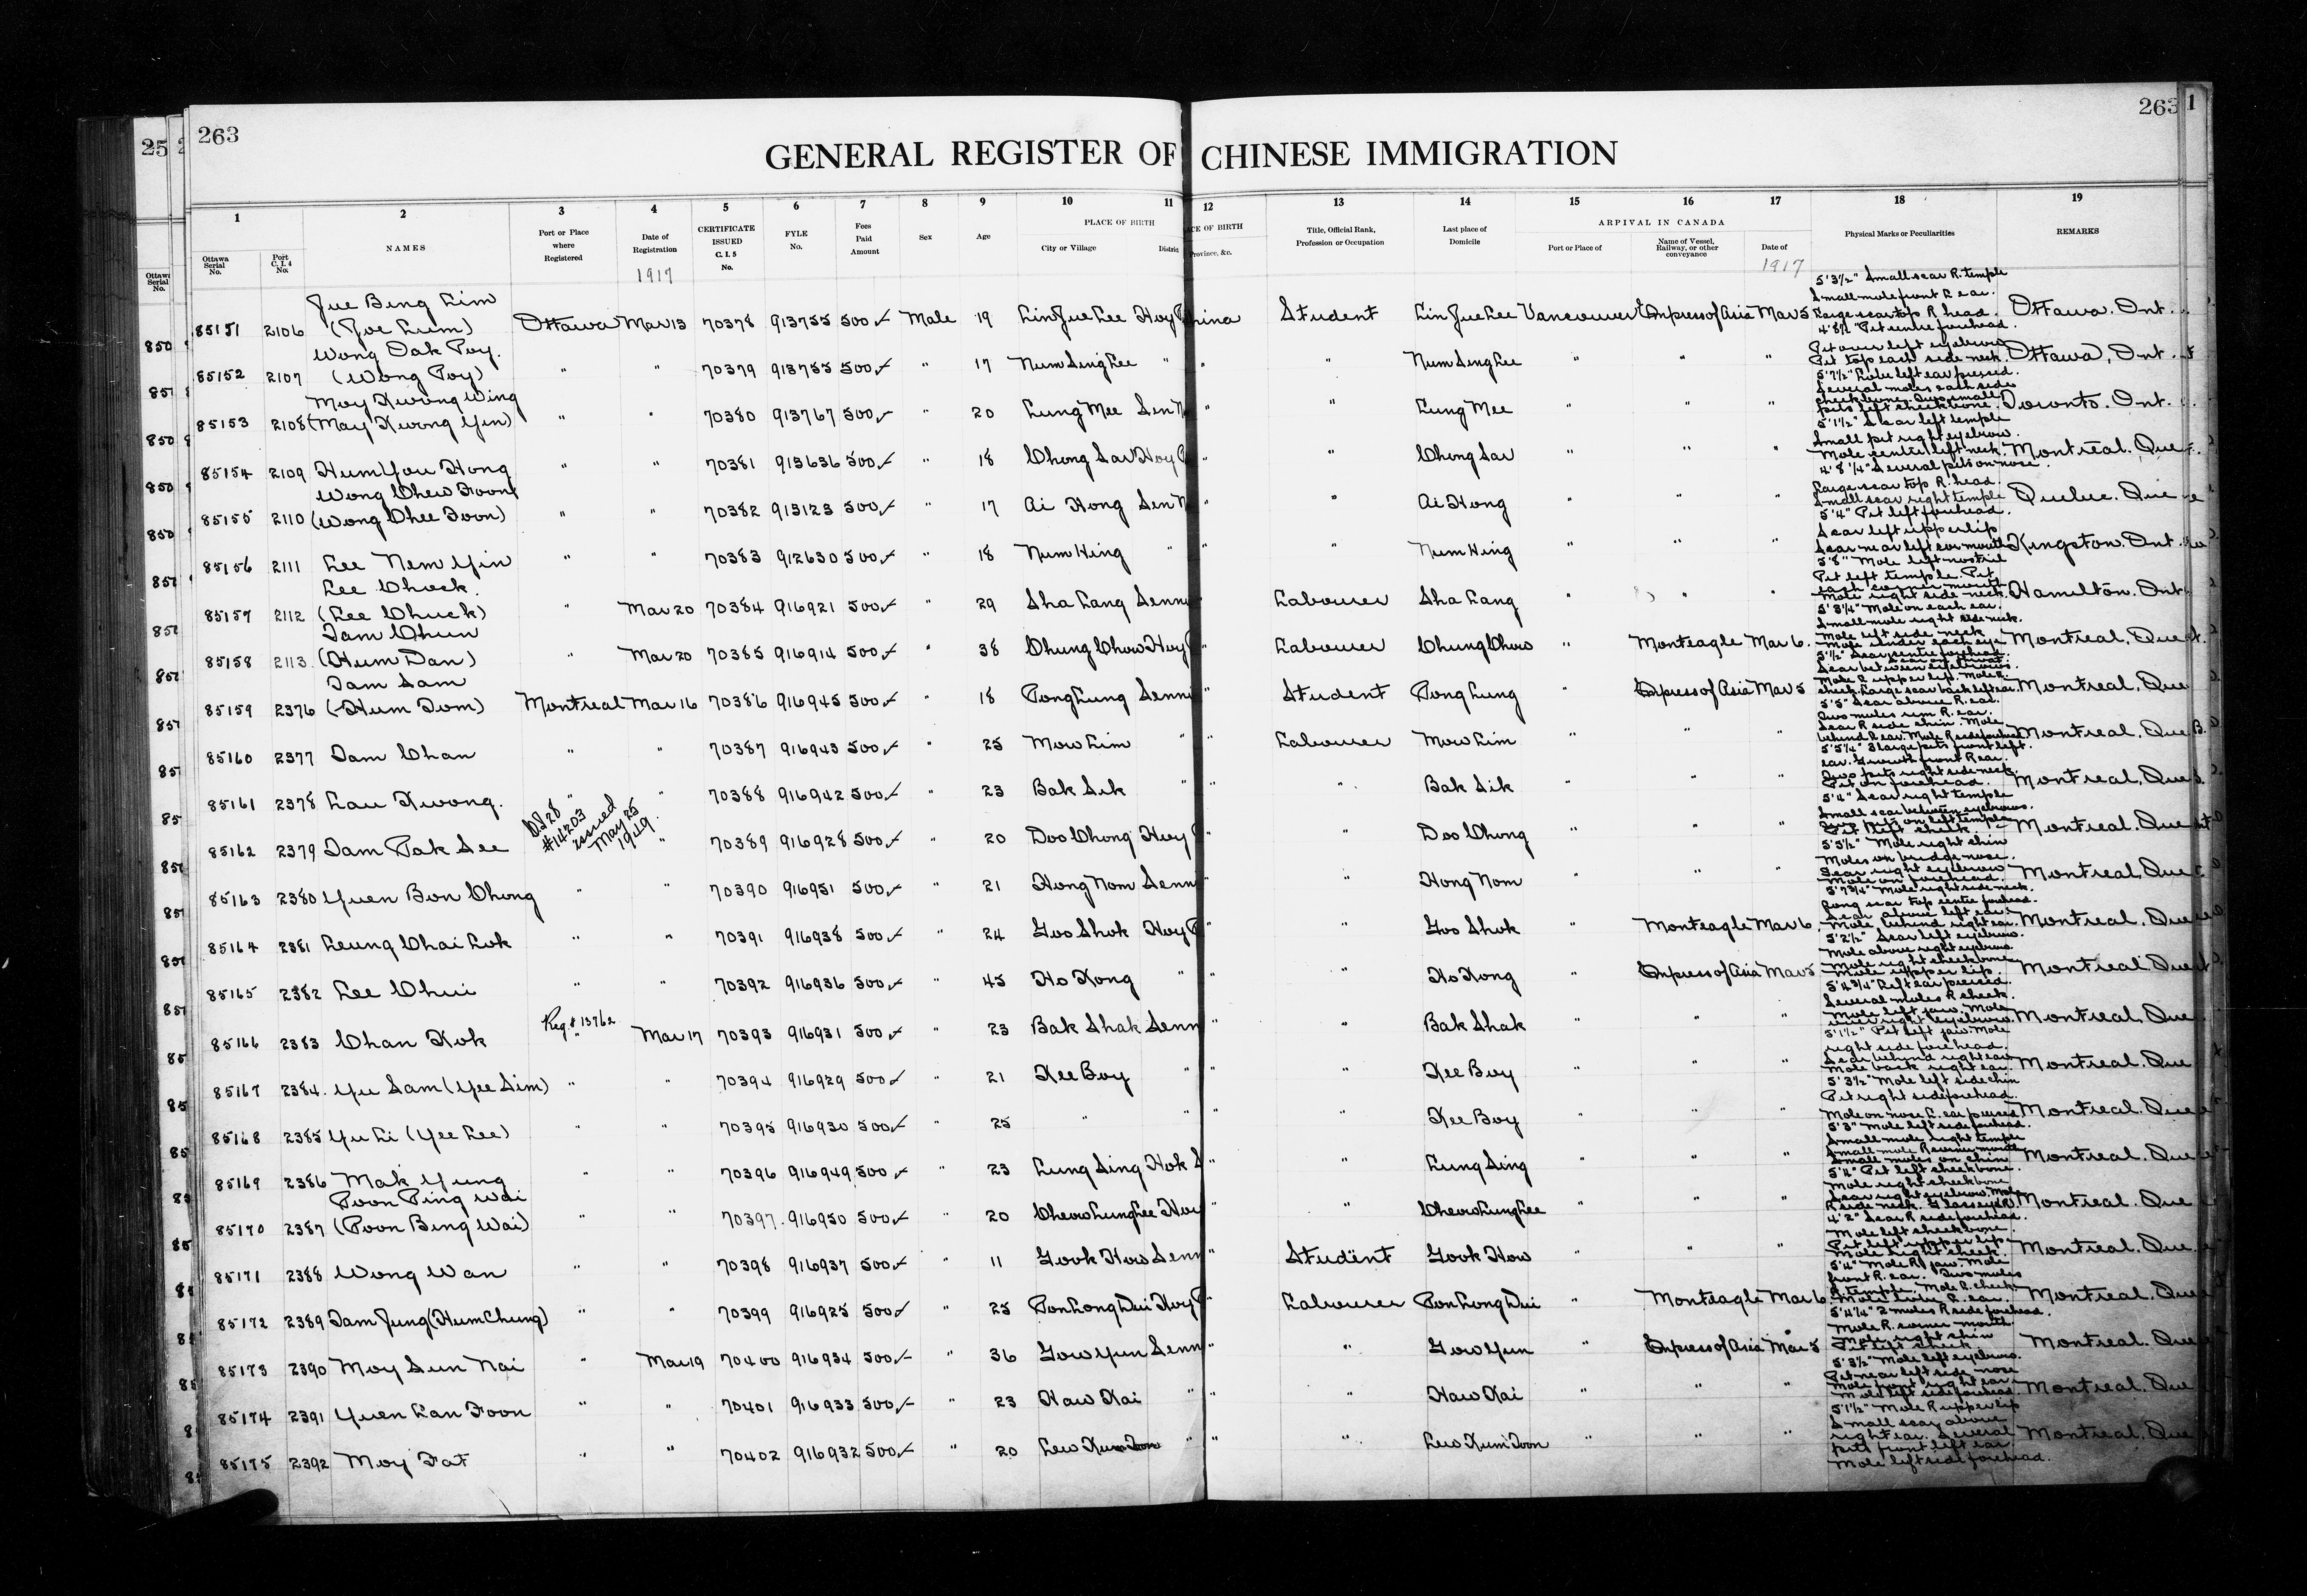 25
263
263
1
GENERAL REGISTER OF CHINESE IMMIGRATION
1 2 3 4 5 6 7 8 9 10 11 12 13 14 15 16 17 18 19
Ottawa Serial No.
Port C. I. 4 No.
NAMES
Port or Place where Registered
Date of Registration
CERTIFICATE ISSUED C. I. 5 No.
FYLE No.
Fees Paid Amount
Sex
Age
PLACE OF BIRTH
City or Village
District
CE OF BIRTH
Province, &c.
Title, Official Rank, Profession or Occupation
Last place of Domicile
ARRIVAL IN CANADA
Port or Place of
Name of Vessel, Railway, or other conveyance
Date of
Physical Marks or Peculiarities
REMARKS
1917
1917
85151 2106 Jue Bing Lim (Joe Lum) Ottawa Mar 13 70378 913755 500 Male 19 Lin Jue Lee Hoy China Student Lin Jue Lee Vancouver Empress of Asia Mar 5 5'3½" Small scar R. temple Small mole front L ear. Large scar top R head. Ottawa. Ont.
85152 2107 Wong Dak Poy. (Wong Poy) " " 70379 913753 500 " 17 Num Sing Lee " " " Num Sing Lee " " " Pit centre forehead. Pit over left eyebrow Pit top each side neck. Ottawa, Ont.
85153 2108 Moy Kwong Wing (May Kwong Yin) " " 70380 913767 500 " 20 Lung Mee Sen N " " Lung Mee " " " 5'7½" Lobe left ear pierced. Several moles each side cheekbone. Two small pits left cheekbone. Toronto. Ont.
85154 2109 Hum You Hong " " 70381 913636 500 " 18 Chong Sar Hoy " " Chong Sar " " " 5'1½" Scar left temple Small pit right eyebrow. Mole centre left neck. Montreal. Que
85155 2110 Wong Chew Foon (Wong Chee Foon) " " 70382 913123 500 " 17 Ai Hong Sen N " " Ai Hong " " " 4'8¼" Several pits on nose. Large scar top R. head. Small scar right temple Quebec. Que
85156 2111 Lee Nem Yin " " 70383 912630 500 " 18 Num Hing " " " Num Hing " " " 5'4" Pit left forehead. Scar left upper lip Scar near left cor mouth Kingston. Ont
85157 2112 Lee Chock. (Lee Chuck) " Mar 20 70384 916921 500 " 29 Sha Lang Senn " Labourer Sha Lang " " " 5'8" Mole left nostril Pit left temple. Pit each corner mouth Mole right side neck. Hamilton. Ont
85158 2113 Tam Chun (Hum Dan) " Mar 20 70385 916914 500 " 38 Chung Chow Hoy " Labourer Chung Chow " Monteagle Mar 6. 5'3¼" Mole on each ear. Small mole right side neck. Mole left side neck Mole under each eye Montreal, Que
85159 2376 Tam Sam (Hum Tom) Montreal Mar 16 70386 916945 500 " 18 Pong Lung Senn " Student Pong Lung " Empress of Asia Mar 5 Scar between eyebrows. Large scar back left ear. Montreal, Que
85160 2377 Tam Chan " " 70387 916943 500 " 25 Mow Lim " " Labourer Mow Lim " " " 5'5" Scar above R. ear. Two moles rim R. ear. Scar R side chin. Mole behind R ear. Mole R side forehead Montreal, Que
85161 2378 Lau Kwong. " " 70388 916942 500 " 23 Bak Sik " " " Bak Sik " " " 5'5¼" 3 large pits front left ear. Growth front R ear. Two pits right side neck. Pit on forehead. Montreal, Que
DJ 28 #14203 issued May 25 1949.
85162 2379 Tam Pak See " 70389 916928 500 " 20 Doo Chong Hoy " " Doo Chong " " " 5'4" Scar right temple Small scar between eyebrows. Two pits on left temple Pit left cheek. Montreal. Que
85163 2380 Yuen Bon Chong " " 70390 916951 500 " 21 Hong Nom Senn " " Hong Nom " " " 5'5½" Mole right chin Moles on bridge nose. Scar right eyebrow Mole on forehead. Montreal, Que
85164 2381 Leung Chai Lok " " 70391 916938 500 " 24 Goo Shok Hoy " " Goo Shok " Monteagle Mar 6. 5'7¾" Mole right side neck. Long scar top centre forehead. Scar above left ear. Mole behind right ear. Montreal. Que
85165 2382 Lee Chui " " 70392 916936 500 " 45 Ho Kong " " " Ho Kong " Empress of Asia Mar 5 5'2½" Scar left eyebrow. Mole above right eyebrow. Mole right cheekbone Mole upper lip. Montreal Que
Reg # 13762
85166 2383 Chan Kok " Mar 17 70393 916931 500 " 23 Bak Shak Senn " " Bak Shak " " " 5'4¾" Left ear pierced. Several moles R cheek. Mole left jaw. Mole over right eyebrow. Montreal, Que
85167 2384. Yu Sam (Yee Sim) " " 70394 916929 500 " 21 Kee Boy " " " Kee Boy " " " 5'1½" Pit left jaw. Mole right side forehead. Scar behind right ear Mole back right ear. Montreal. Que
85168 2385 Yu Li (Yee Lee) " " 70395 916930 500 " 25 " " " " Kee Boy " " " 5'3½" Mole left side chin Pit right side forehead. Mole on nose L. ear pierced Montreal. Que
85169 2386 Mak Yung " " 70396 916949 500 " 23 Lung Sing Hok S " " Lung Sing " " " 5'3" Mole left side forehead. Small mole right temple Small mole R corner mouth Small moles on chin Montreal. Que
85170 2387 Poon Ping Wai (Poon Bing Wai) " " 70397. 916950 500 " 20 Cheow Lung Lee Hoy " " Cheow Lung Lee " " " 5'4" Pit left cheekbone. Mole right cheekbone Scar right eyebrow. Mole R side neck. Glass eye R. Montreal. Que
85171 2388 Wong Wan " " 70398 916937 500 " 11 Gook How Senn " Student Gook How " " " 4'2" Scar R side forehead. Mole left cheekbone. Pit left upper lip. Mole right cheek. Montreal. Que
85172 2389 Tam Jung (Hum Chung) " " 70399 916925 500 " 25 Pon Long Dui Hoy " Labourer Pon Long Dui " Monteagle Mar 6. 5'4" Mole R jaw. Mole front R. ear. Two moles R. temple. Mole R. cheek. Montreal. Que
85173 2390 Moy Sun Nai " Mar 19 70400 916934 500 " 36 Gow Yun Senn " " Gow Yun " Empress of Asia Mar 5 5'4¼" 2 moles R side forehead. Mole R. corner mouth. Mole right chin Pit left cheek. Montreal. Que
85174 2391 Yuen Lan Foon " " 70401 916933 500 " 23 Haw Kai " " " Haw Kai " " " 5'3½" Mole left eyebrow. Pit near left side nose Mole front right ear. Mole left side forehead. Montreal. Que
85175 2392 Moy Fat " " 70402 916932 500 " 20 Lew Kum Toon " " " Lew Kum Toon " " " 5'1½" Mole R upper lip Small scar above right ear. Several pits front left ear. Mole left side forehead. Montreal, Que